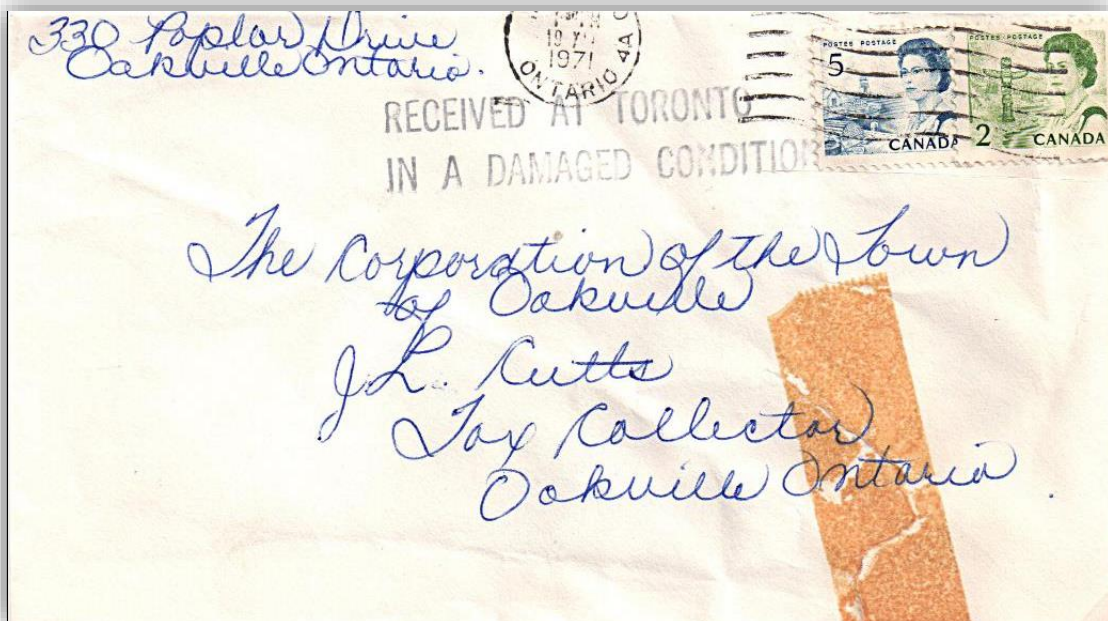 330 Poplar Drive
Oakville Ontario.
19
1971
ONTARIO 4A
RECEIVED AT TORONTO
IN A DAMAGED CONDITION
POSTES POSTAGE
5
CANADA
POSTES POSTAGE
2
CANADA
The Corporation of the Town
of Oakville
J.L. Cutts
Tax Collector
Oakville Ontario.